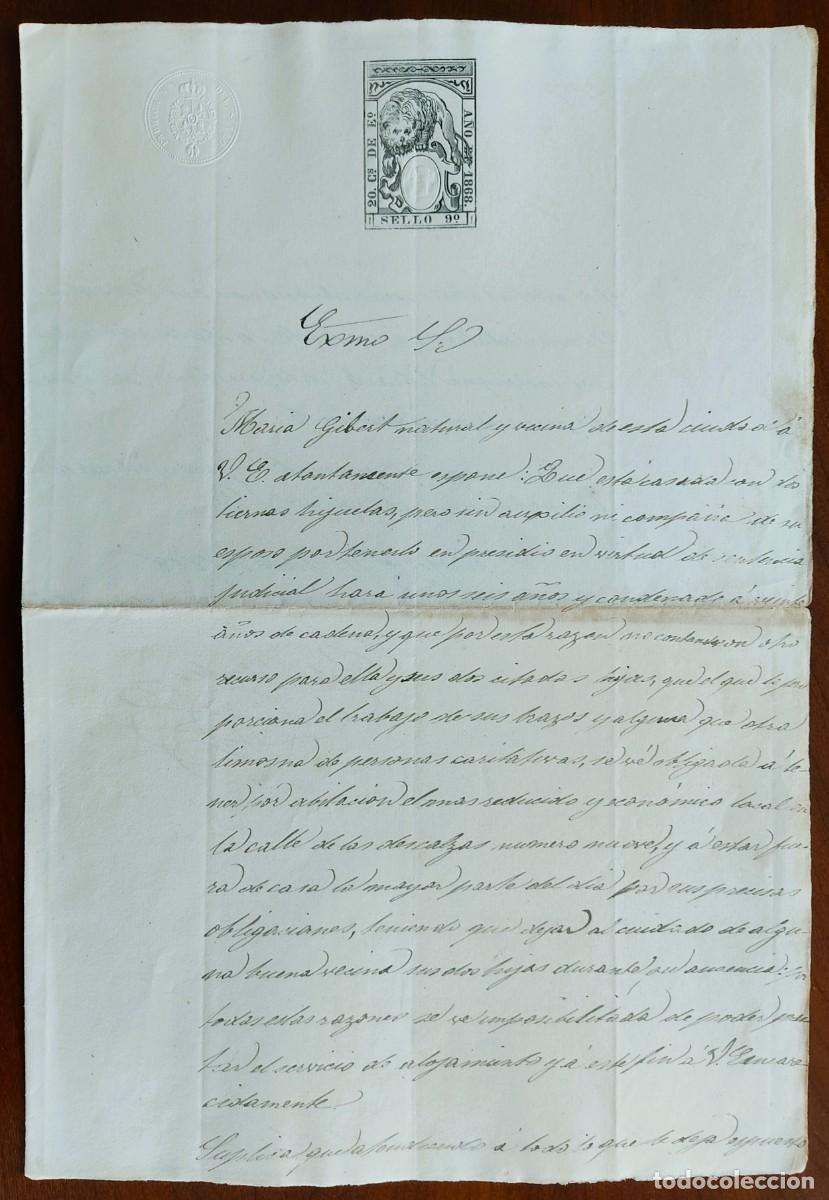 20. Cs. DE Eo.
AÑO 1868.
SELLO 9º
Exmo Sr
Maria Gibert natural y vecina de esta ciudad á
V. E. atentamente espone: Que está casada con dos
tiernas hijuelas, pero sin auxilio ni compañia de su
esposo por tenerlo en presidio en virtud de sentencia
judicial hará unos seis años y condenado á veinte
años de cadena, y que por esta razon no contando con otro
recurso para ella y sus dos citadas hijas, que el que le pro
porciona el trabajo de sus brazos y alguna que otra
limosna de personas caritativas, se vé obligada á te
ner por abitacion el mas reducido y económico local en
la calle de las descalzas numero nueve, y á estar fue-
ra de casa la mayor parte del dia por sus precisas
obligaciones, teniendo que dejar al cuidado de algu-
na buena vecina sus dos hijas durante su ausencia: por
todas estas razones se vé imposibilitada de poder pres
tar el servicio de alojamiento y á este fin á V. E. encare
cidamente
Suplica que atendiendo á todo lo que le deja espuesto
todocoleccion
todocoleccion.net